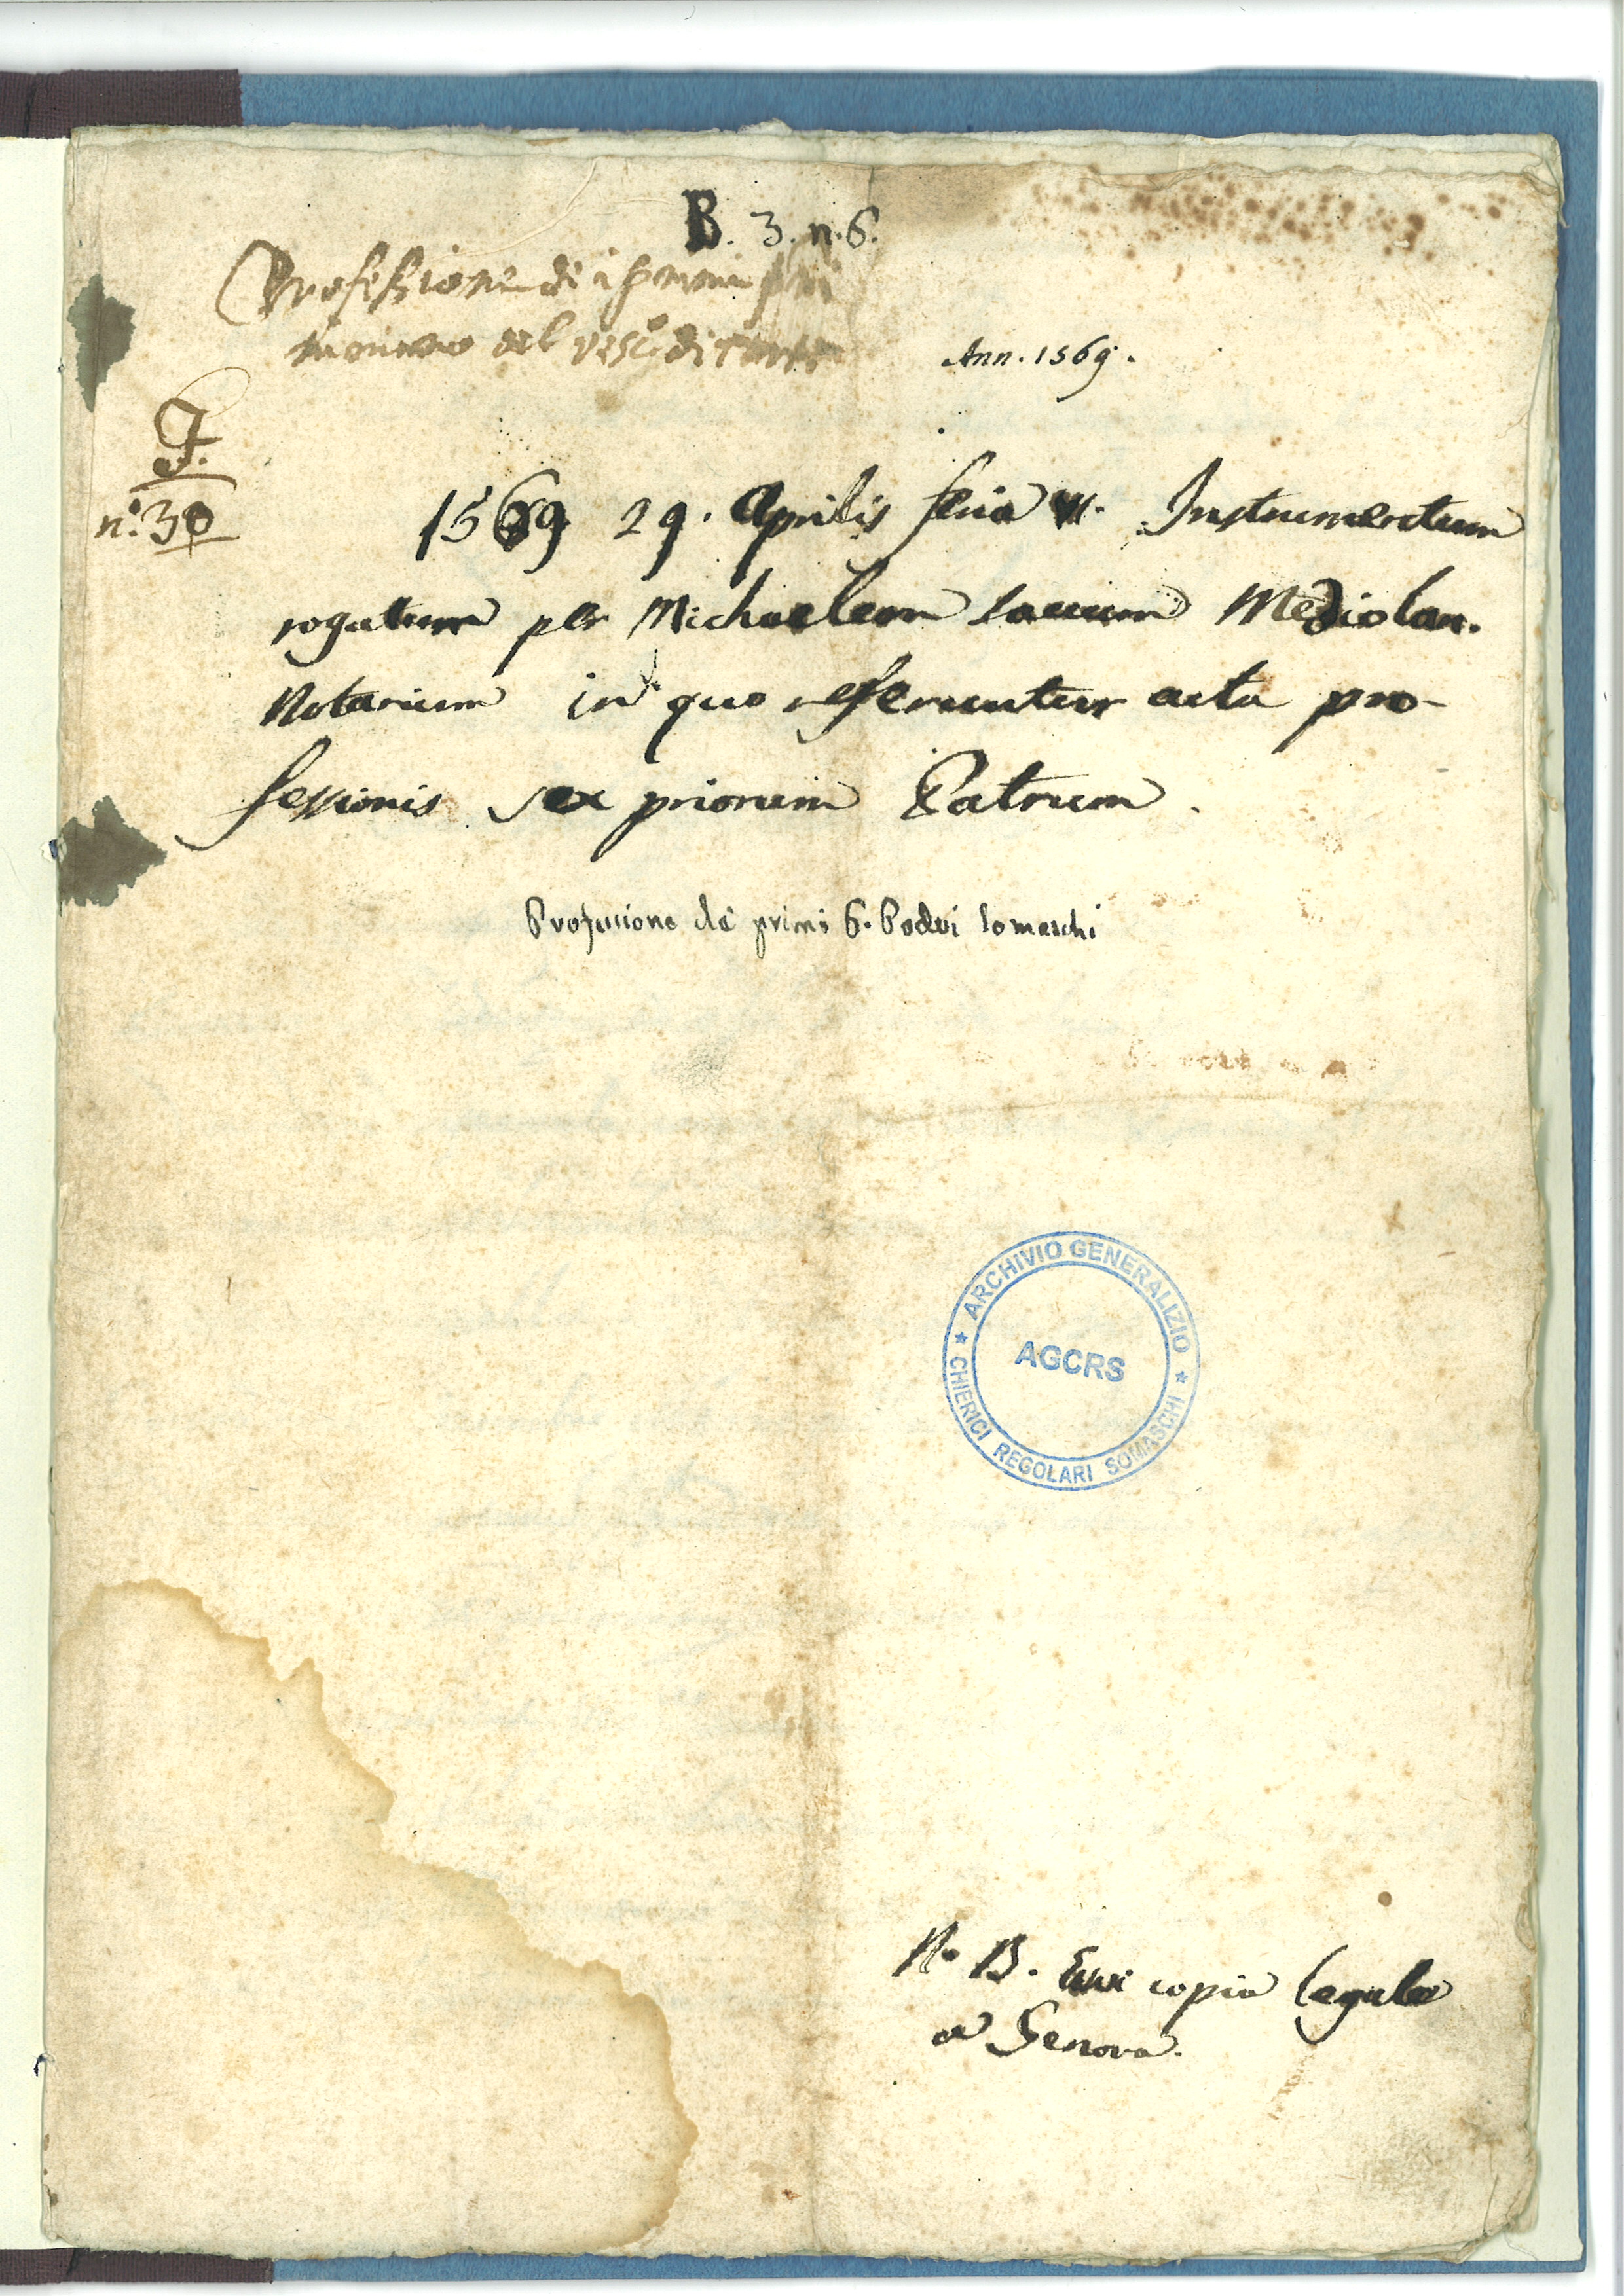 B. 3. n. 6.
Professione de i primi p̃ri
in mano del vesc.º di
Ann. 1569.
F.
n.º 30
1569 29. Aprilis feria VI. Instrumentum
rogatum per Michaelem Mediolan.
Notarium in quo referuntur acta pro-
fessionis sex priorum Patrum.
Professione de' primi 6. Padri Somaschi
ARCHIVIO GENERALIZIO
AGCRS
CHIERICI REGOLARI SOMASCHI
N. B. Evvi copia legale
a Genova.